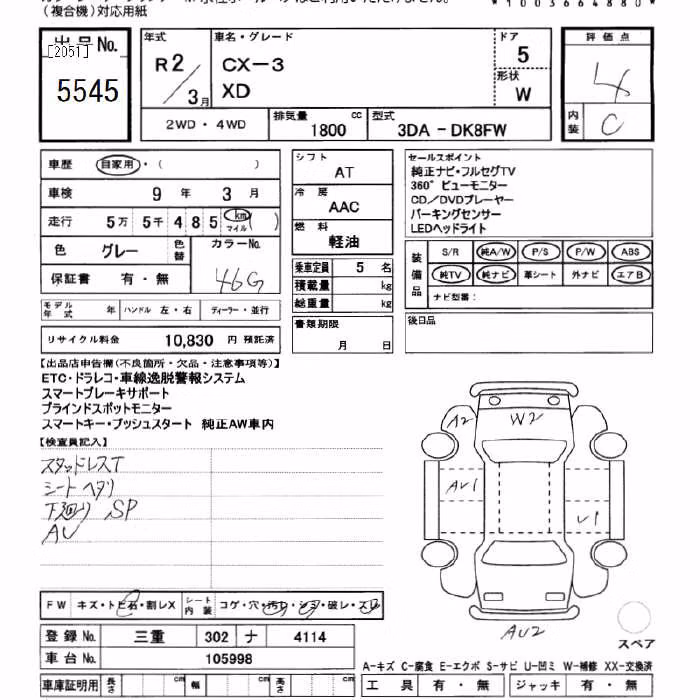 (複合機)対応用紙
*1003664880*
出品No.
[2051]
5545
年式
R2/3月
車名・グレード
CX-3
XD
ドア
5
形状
W
2WD・4WD
排気量
1800
cc
型式
3DA - DK8FW
評価点
4
内装
C
車歴
自家用・( )
車検
9 年 3 月
走行
5万 5千 4 8 5 km マイル ( )
色
グレー
色替
カラーNo.
46G
保証書
有・無
モデル年式
年
ハンドル 左・右
ディーラー・並行
リサイクル料金
10,830 円 預託済
シフト
AT
冷房
AAC
燃料
軽油
乗車定員
5 名
積載量
kg
総重量
kg
書類期限
月 日
セールスポイント
純正ナビ・フルセグTV
360° ビューモニター
CD/DVDプレーヤー
パーキングセンサー
LEDヘッドライト
装備品
S/R 純A/W P/S P/W ABS
純TV 純ナビ 革シート 外ナビ エアB
ナビ型番:
後日品
【出品店申告欄(不良箇所・欠品・注意事項等)】
ETC・ドラレコ・車線逸脱警報システム
スマートブレーキサポート
ブラインドスポットモニター
スマートキー・プッシュスタート 純正AW車内
【検査員記入】
スタッドレスT
シートヘタリ
下廻り SP
AU
A2
W2
AV1
U1
AU2
スペア
FW
キズ・トビ石・割レX
シート内装
コゲ・穴・汚レ・シミ・破レ・スレ
登録 No.
三重 302 ナ 4114
車台 No.
105998
車庫証明用
長さ cm
幅 cm
高さ cm
A-キズ C-腐食 E-エクボ S-サビ U-凹ミ W-補修 XX-交換済
工具
有・無
ジャッキ
有・無